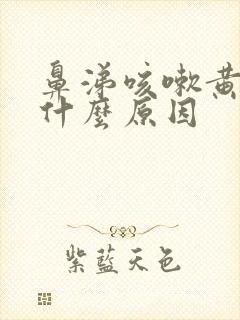 鼻涕咳嗽黄
什麼原因
紫藍天色